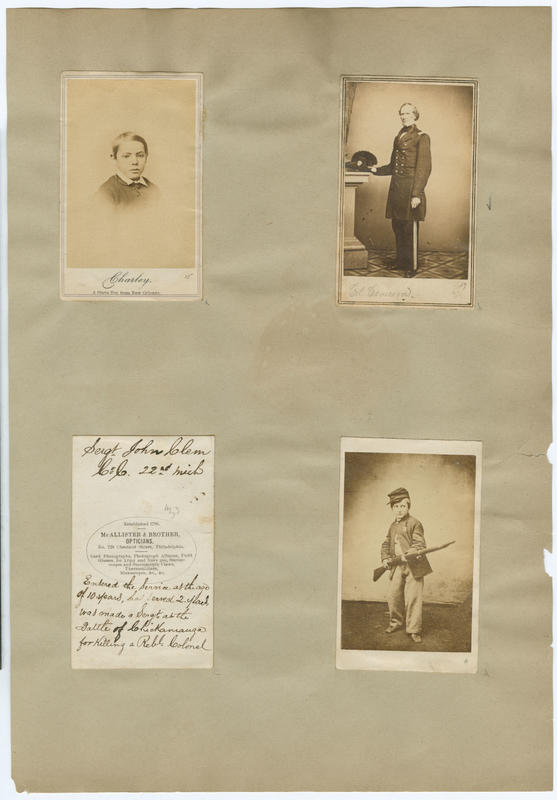 Charley.
A Slave Boy from New Orleans.
Sergt John Clem
Co C. 22nd Mich
Established 1796.
McALLISTER & BROTHER,
OPTICIANS,
No. 728 Chestnut Street, Philadelphia.
Card Photographs, Photograph Albums, Field
Glasses, for Army and Navy use, Stereo-
scopes and Stereoscopic Views,
Thermometers,
Microscopes, &c., &c.
Entered the Service at the age
of 10 years, has served 2 years
was made a Sergt at the
Battle of Chickamauga
for killing a Reb. Colonel